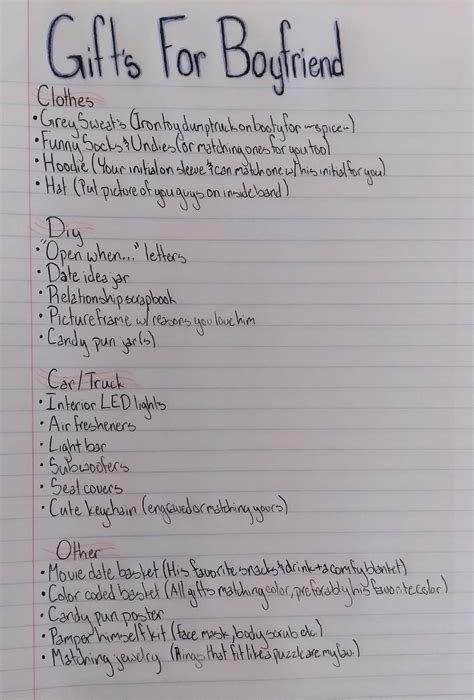 Gift's For Boyfriend
Clothes
• Grey Sweat's (Iron toy dump truck on booty for ~spice~)
• Funny Socks & Undies (or matching ones for you too)
• Hoodie (Your initial on sleeve & can match one w/ his initial for you)
• Hat (Put picture of you guys on inside band)
Diy
• "Open when..." letters
• Date idea jar
• Relationship scrapbook
• Picture frame w/ reasons you love him
• Candy pun jar(s)
Car/Truck
• Interior LED lights
• Air fresheners
• Light bar
• Subwoofers
• Seat covers
• Cute keychain (engraved or matching yours)
Other
• Movie date basket (His favorite snacks & drink + a comfy blanket)
• Color coded basket (All gifts matching color, preferably his favorite color)
• Candy pun poster
• Pamper himself kit (face mask, body scrub etc.)
• Matching jewelry (Rings that fit like a puzzle are my fav.)